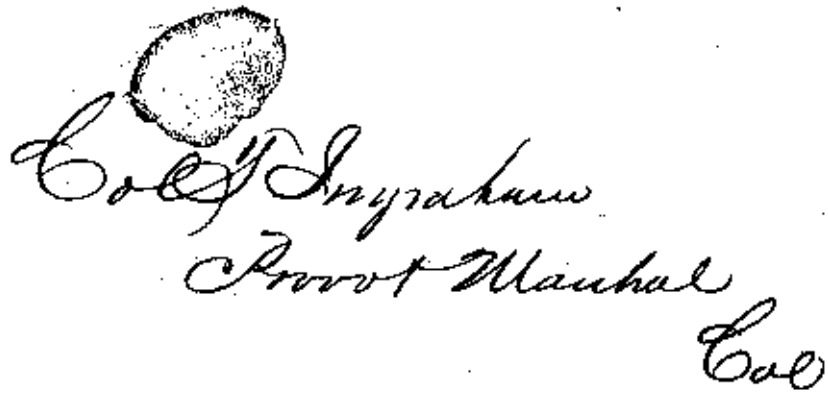 Col T Ingraham
Provost Marshal
Col